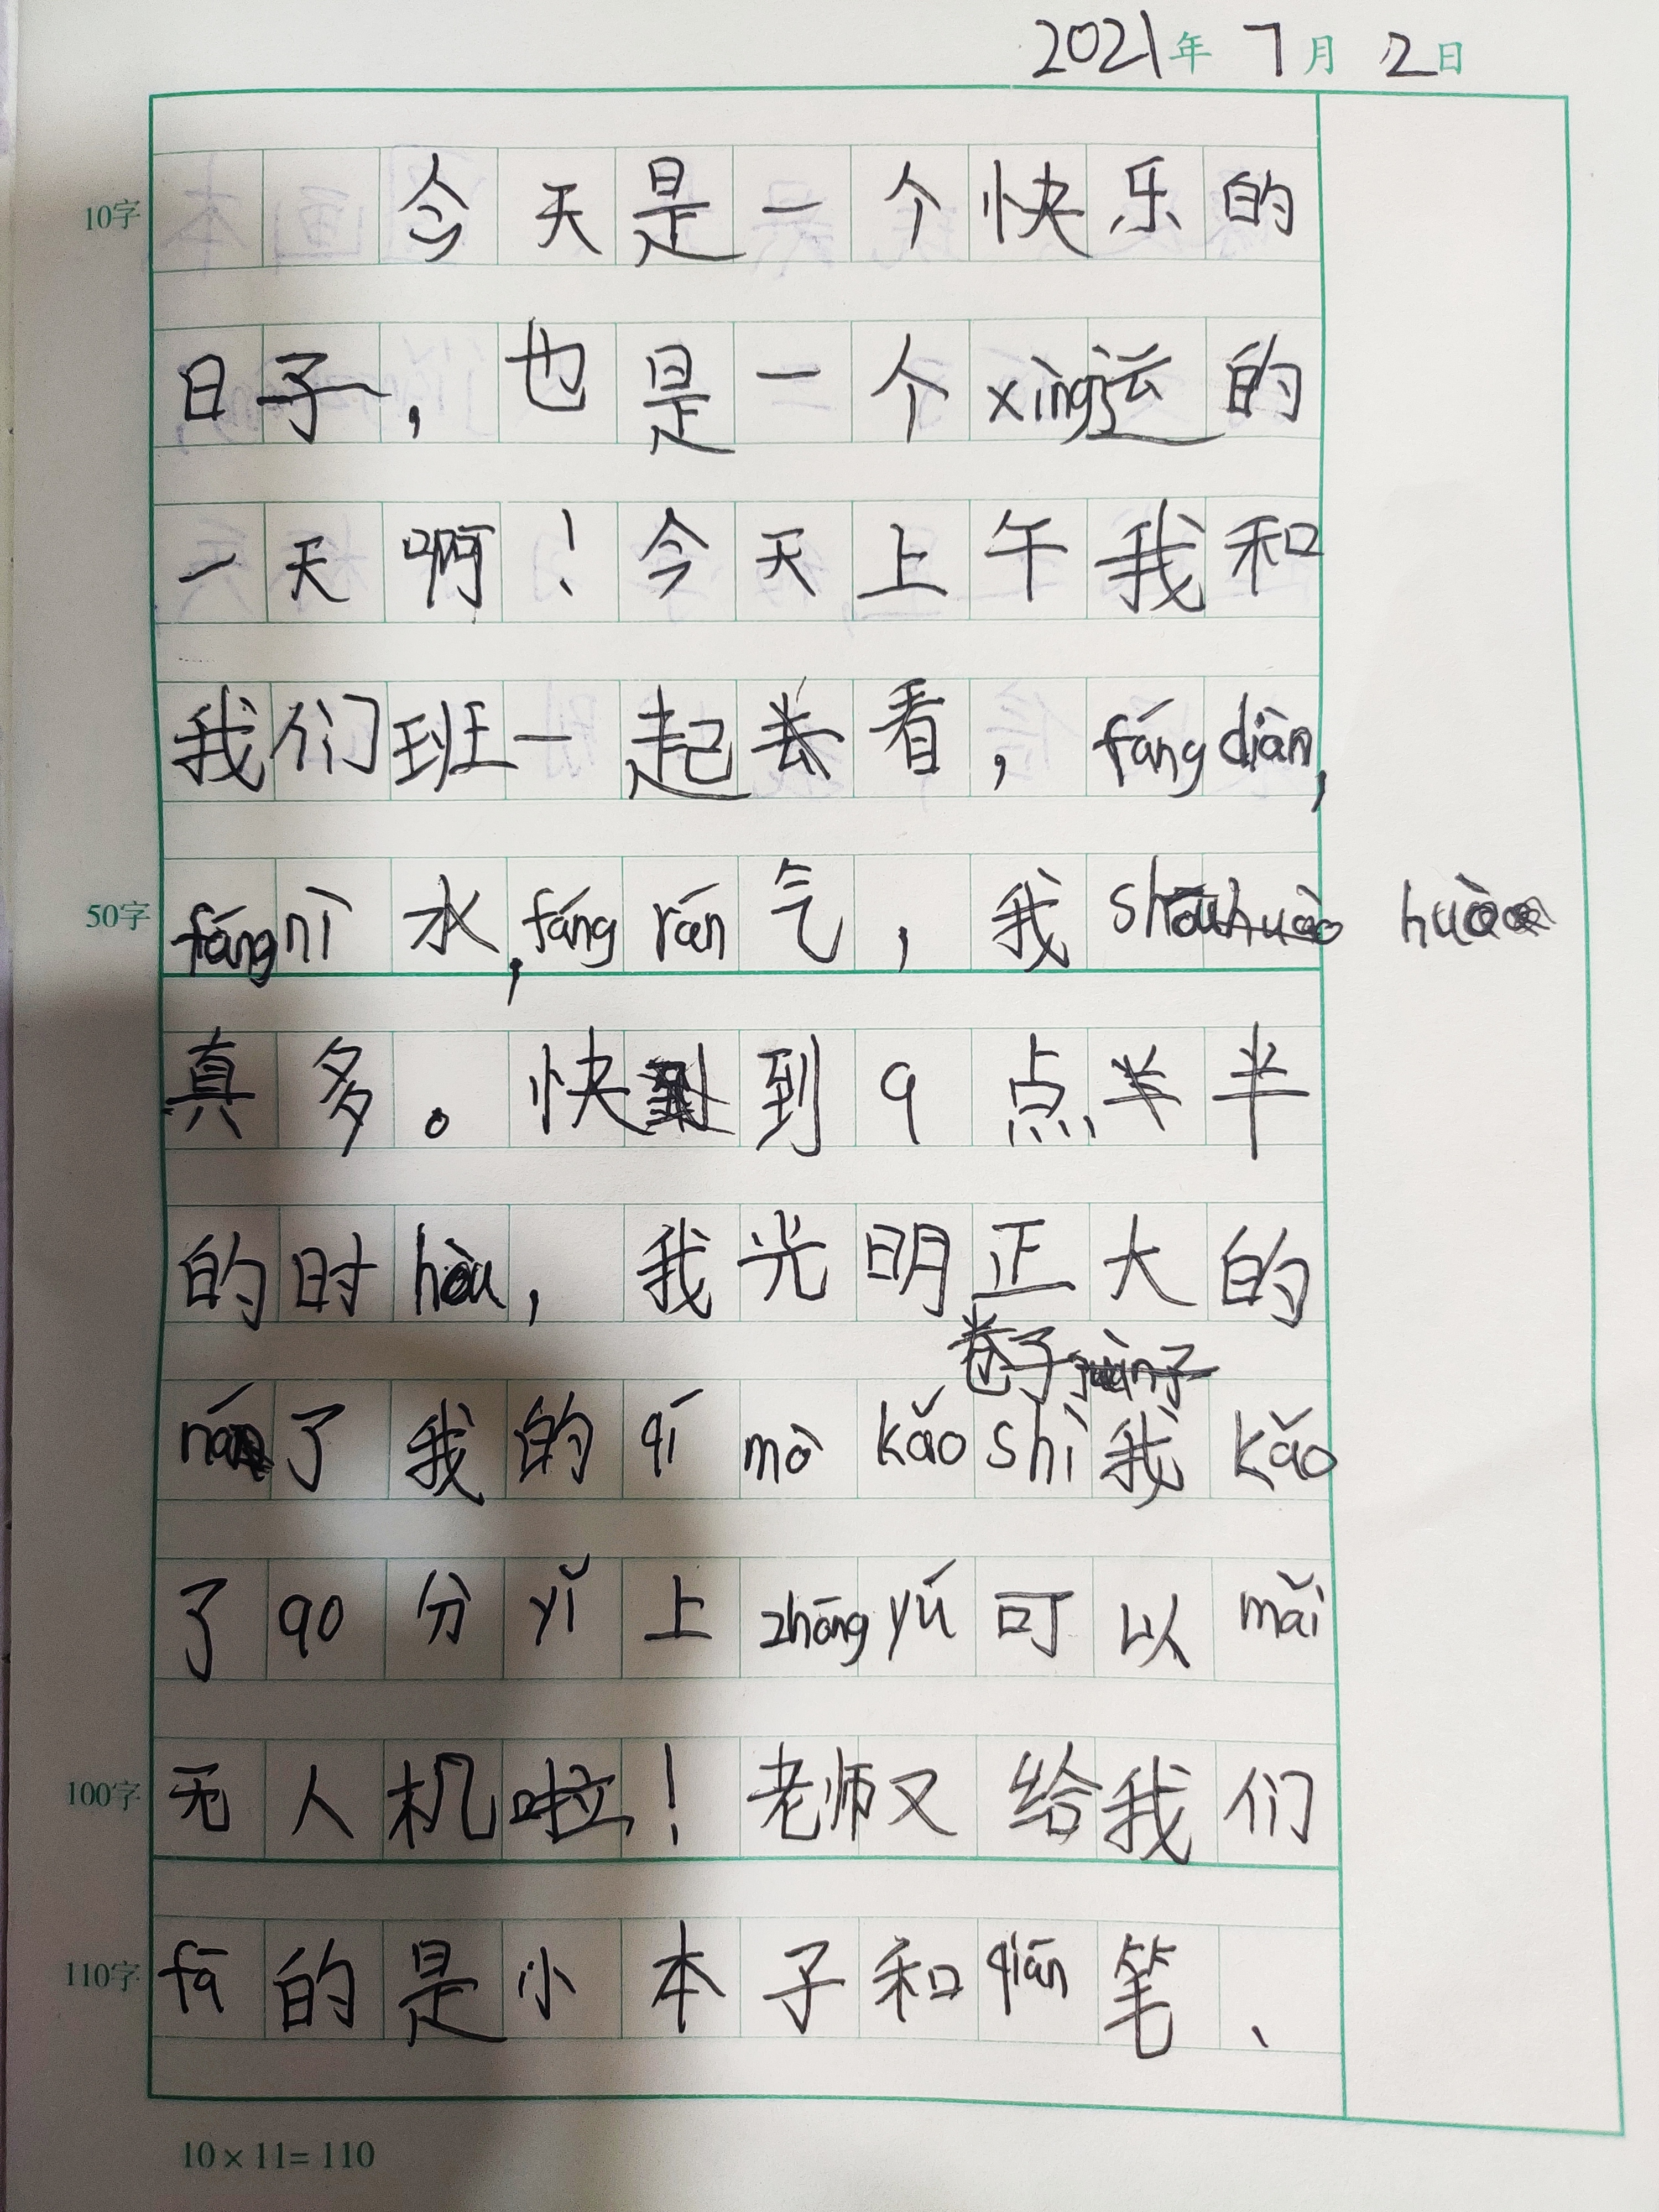 2021年7月2日
今天是一个快乐的
10字
日子，也是一个xìng运的
一天啊！今天上午我和
我们班一起去看，fáng diàn，
fáng nì水，fáng rán气，我 huò
50字
真多。快到9点半半
的时hòu，我光明正大的
卷子
ná了我的qí mò kǎo shì我kǎo
了90分yǐ上zhōng yú可以mǎi
无人机啦！老师又给我们
100字
fā的是小本子和qiān笔、
110字
10×11=110